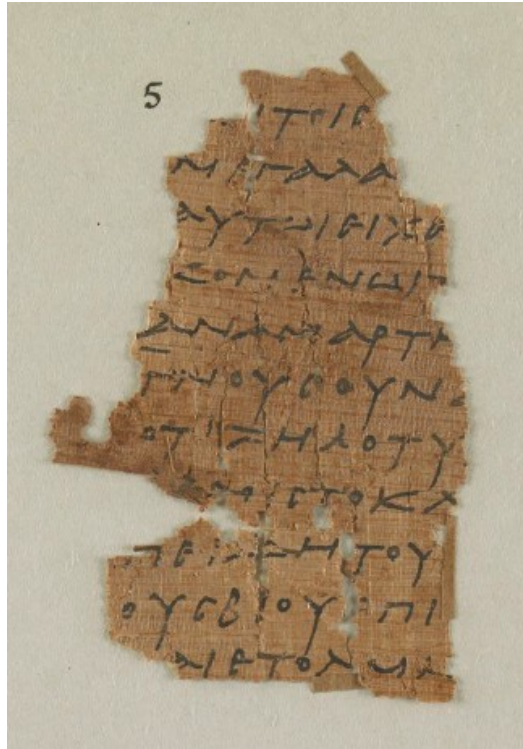 5
ΜΕΓΑΛΑ
ΑΥΤΩΙΕΙΧΕ
ϹΟΜΕΝΩΙ
ΑΝΑΜΑΡΤΗ
ΝΟΥϹΟΥΝ
ΟΤΙΖΗΛΟΤΥ
ΕΤΟΚΑ
ΠΕΙΔΗΤΟΥ
ΟΥϹΒΙΟΥΕΠΙ
ΙΕΤΟΛΜΑ